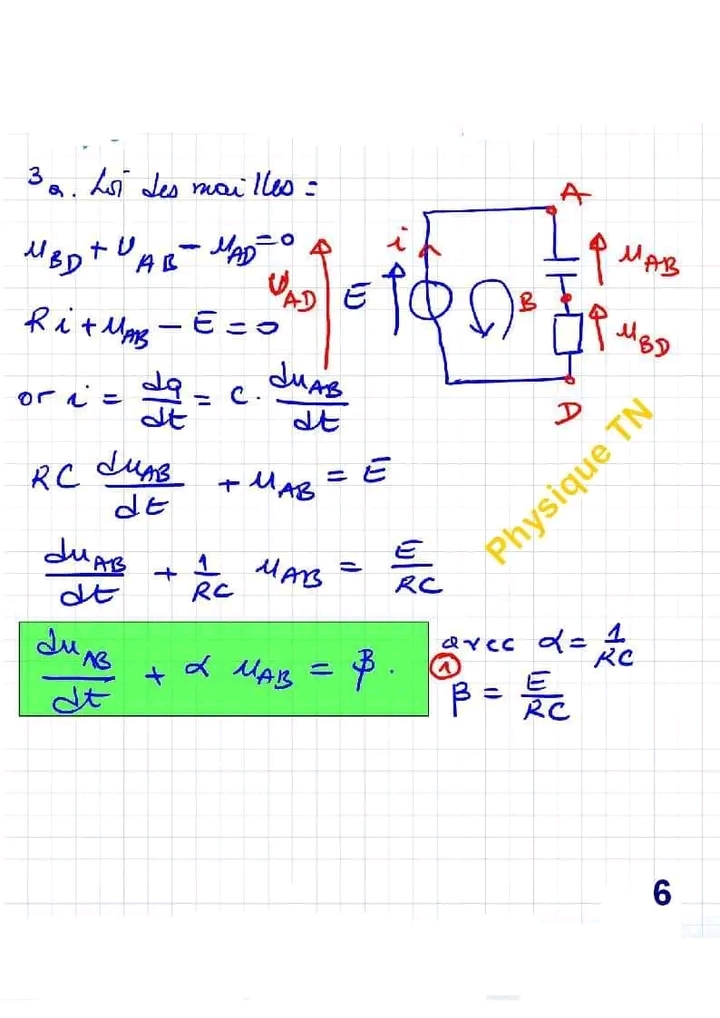 3 a. Loi des mailles =
u_BD + U_AB - u_AD = 0
Ri + u_AB - E = 0
or i = dq/dt = C . du_AB/dt
RC du_AB/dt + u_AB = E
du_AB/dt + 1/RC u_AB = E/RC
du_AB/dt + α u_AB = β .
avec α = 1/RC
1
β = E/RC
A
i
u_AB
U_AD
E
B
u_BD
D
Physique TN
6